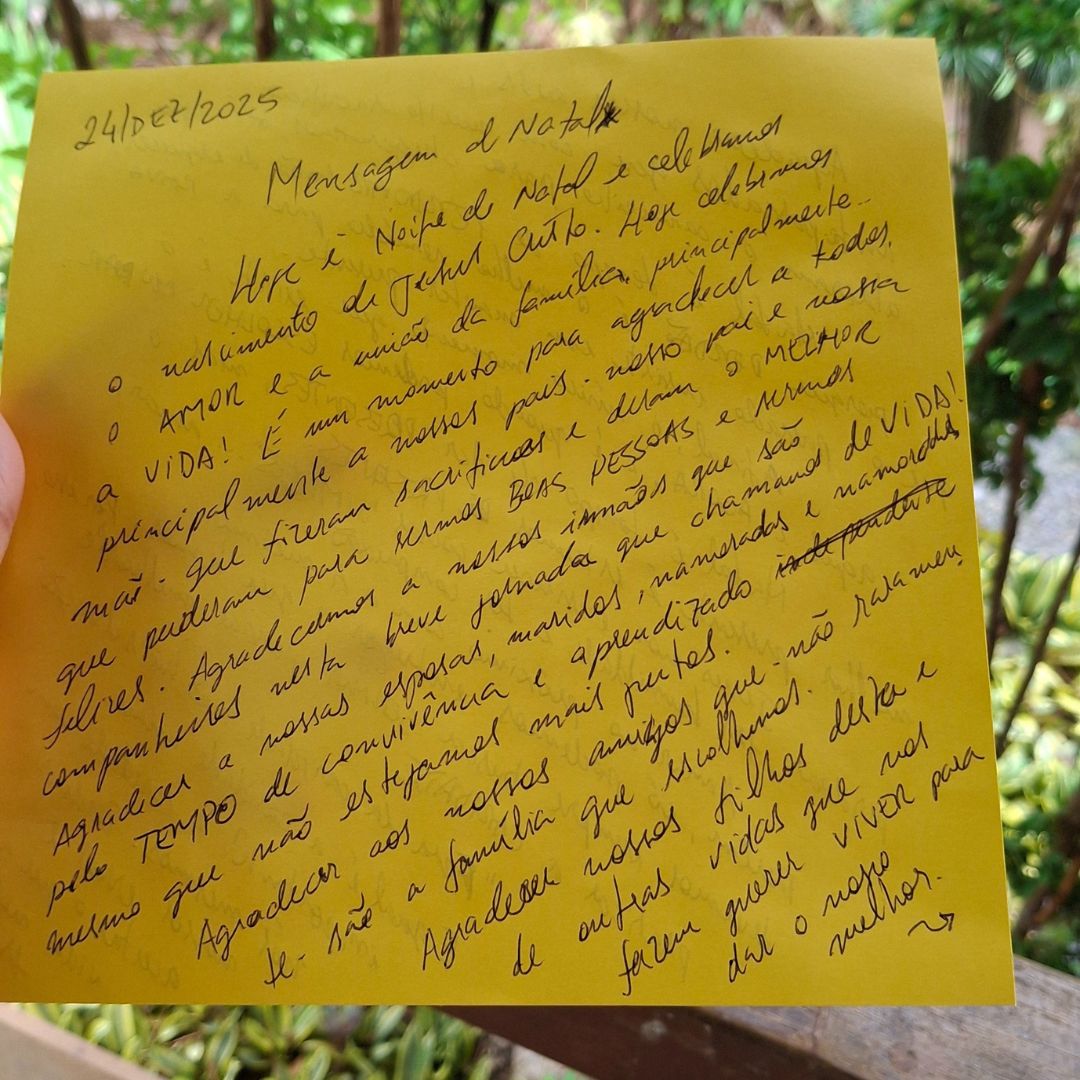 24/DEZ/2025
Mensagem d Natal
Hoje é Noite de Natal e celebramos
o nascimento de Jesus Cristo. Hoje celebramos
o AMOR e a união da família, principalmente..
a VIDA! É um momento para agradecer a todos,
principalmente a nossos pais - nosso pai e nossa
mãe - que fizeram sacrifícios e deram o MELHOR
que puderam para sermos BOAS PESSOAS e sermos
felizes. Agradecemos a nossos irmãos que são
companheiros nesta breve jornada que chamamos de VIDA!
Agradecer a nossas esposas, maridos, namoradas e namorados
pelo TEMPO de convivência e aprendizado independente
mesmo que não estejamos mais juntos.
Agradecer aos nossos amigos que - não raramen-
te - são a família que escolhemos.
Agradecer nossos filhos desta e
de outras vidas que nos
fazem querer VIVER para
dar o nosso
melhor.